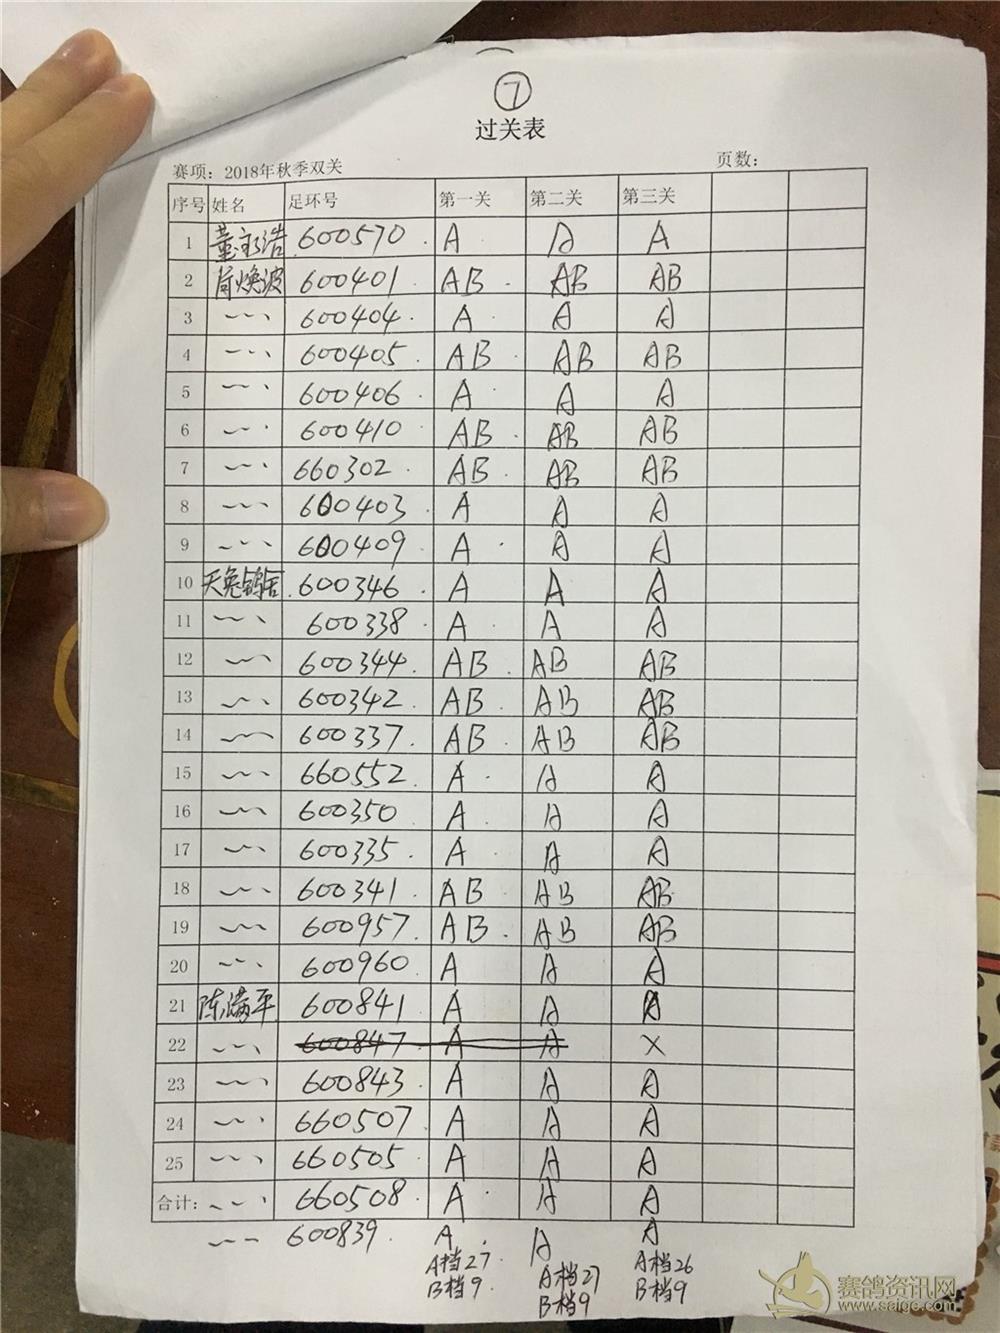 7
过关表
赛项：2018年秋季双关 页数：
序号 姓名 足环号 第一关 第二关 第三关
1 董永浩 600570 A A A
2 焕波 600401 AB AB AB
3 600404 A A A
4 600405 AB AB AB
5 600406 A A A
6 600410 AB AB AB
7 660302 AB AB AB
8 600403 A A A
9 600409 A A A
10 天兔鸽舍 600346 A A A
11 600338 A A A
12 600344 AB AB AB
13 600342 AB AB AB
14 600337 AB AB AB
15 660552 A A A
16 600350 A A A
17 600335 A A A
18 600341 AB AB AB
19 600957 AB AB AB
20 600960 A A A
21 陈满平 600841 A A A
22 600847 A A X
23 600843 A A A
24 660507 A A A
25 660505 A A A
合计： 660508 A A A
600839 A A A
A档27 A档27 A档26
B档9 B档9 B档9
赛鸽资讯网
www.saige.com